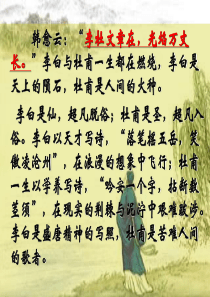 韩愈云：“李杜文章在，光焰万丈
长。”李白与杜甫一生都在燃烧，李白是
天上的陨石，杜甫是人间的火种。
李白是仙，超凡脱俗；杜甫是圣，超凡入
俗。李白以天才写诗，“落笔摇五岳，笑
傲凌沧州”，在浪漫的想象中飞行；杜甫
一生以学养写诗，“吟安一个字，拈断数
茎须”，在现实的荆棘与泥泞中艰难跋涉。
李白是盛唐精神的写照，杜甫是苦难人间
的歌者。